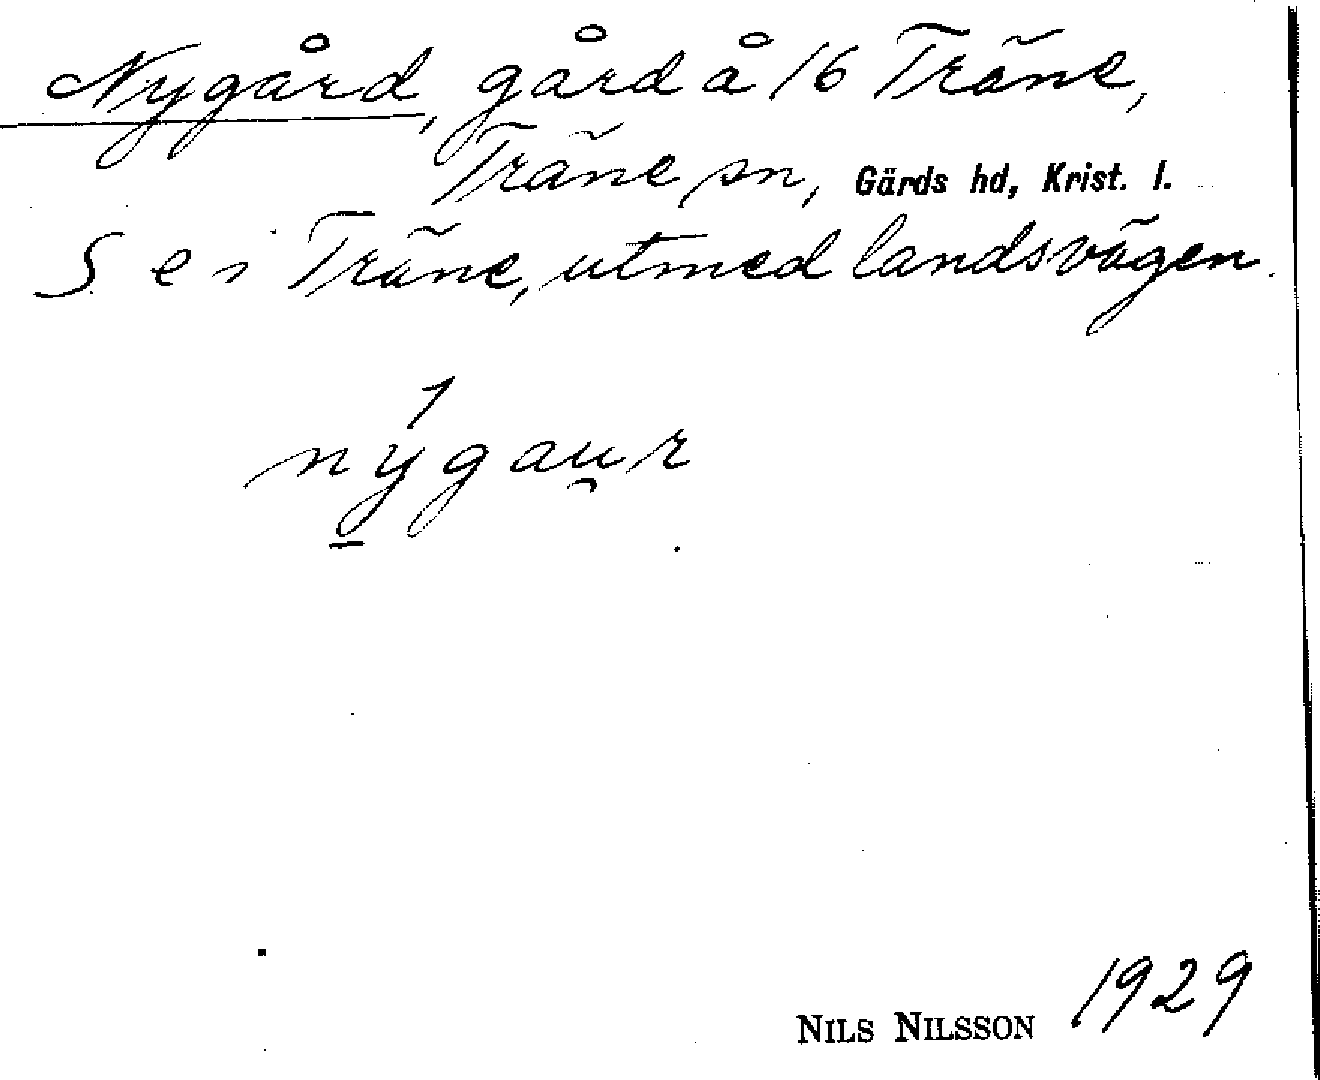 Nygård, gård å 16 Träne,
Träne sn, Gärds hd, Krist. l.
S e i Träne, utmed landsvägen.
nýgau̯r
NILS NILSSON 1929